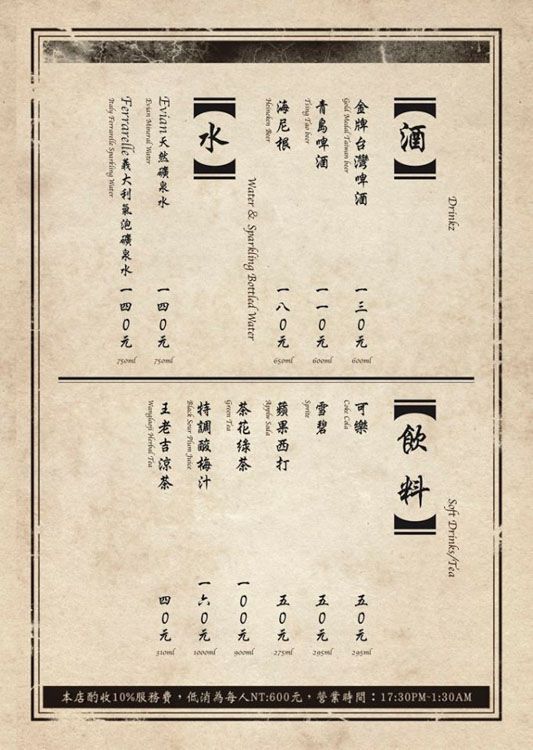 酒
Drinkz
金牌台灣啤酒
Gold Medal Taiwan beer
一三0元
600ml
青島啤酒
Tsing Tao beer
一一0元
600ml
海尼根
Heineken Beer
一八0元
650ml
水
Water & Sparkling Bottled Water
Evian天然礦泉水
Evian Mineral Water
一四0元
750ml
Ferrarelle義大利氣泡礦泉水
Italy Ferrarelle Sparkling Water
一四0元
750ml
飲料
Soft Drinks/Tea
可樂
Coke Cola
五0元
295ml
雪碧
Sprite
五0元
295ml
蘋果西打
Apple Sida
五0元
275ml
茶花綠茶
Green Tea
一00元
900ml
特調酸梅汁
Black Sour Plum Juice
一六0元
1000ml
王老吉涼茶
Wanglaoji Herbal Tea
四0元
310ml
本店酌收10%服務費，低消為每人NT:600元，營業時間：17:30PM~1:30AM